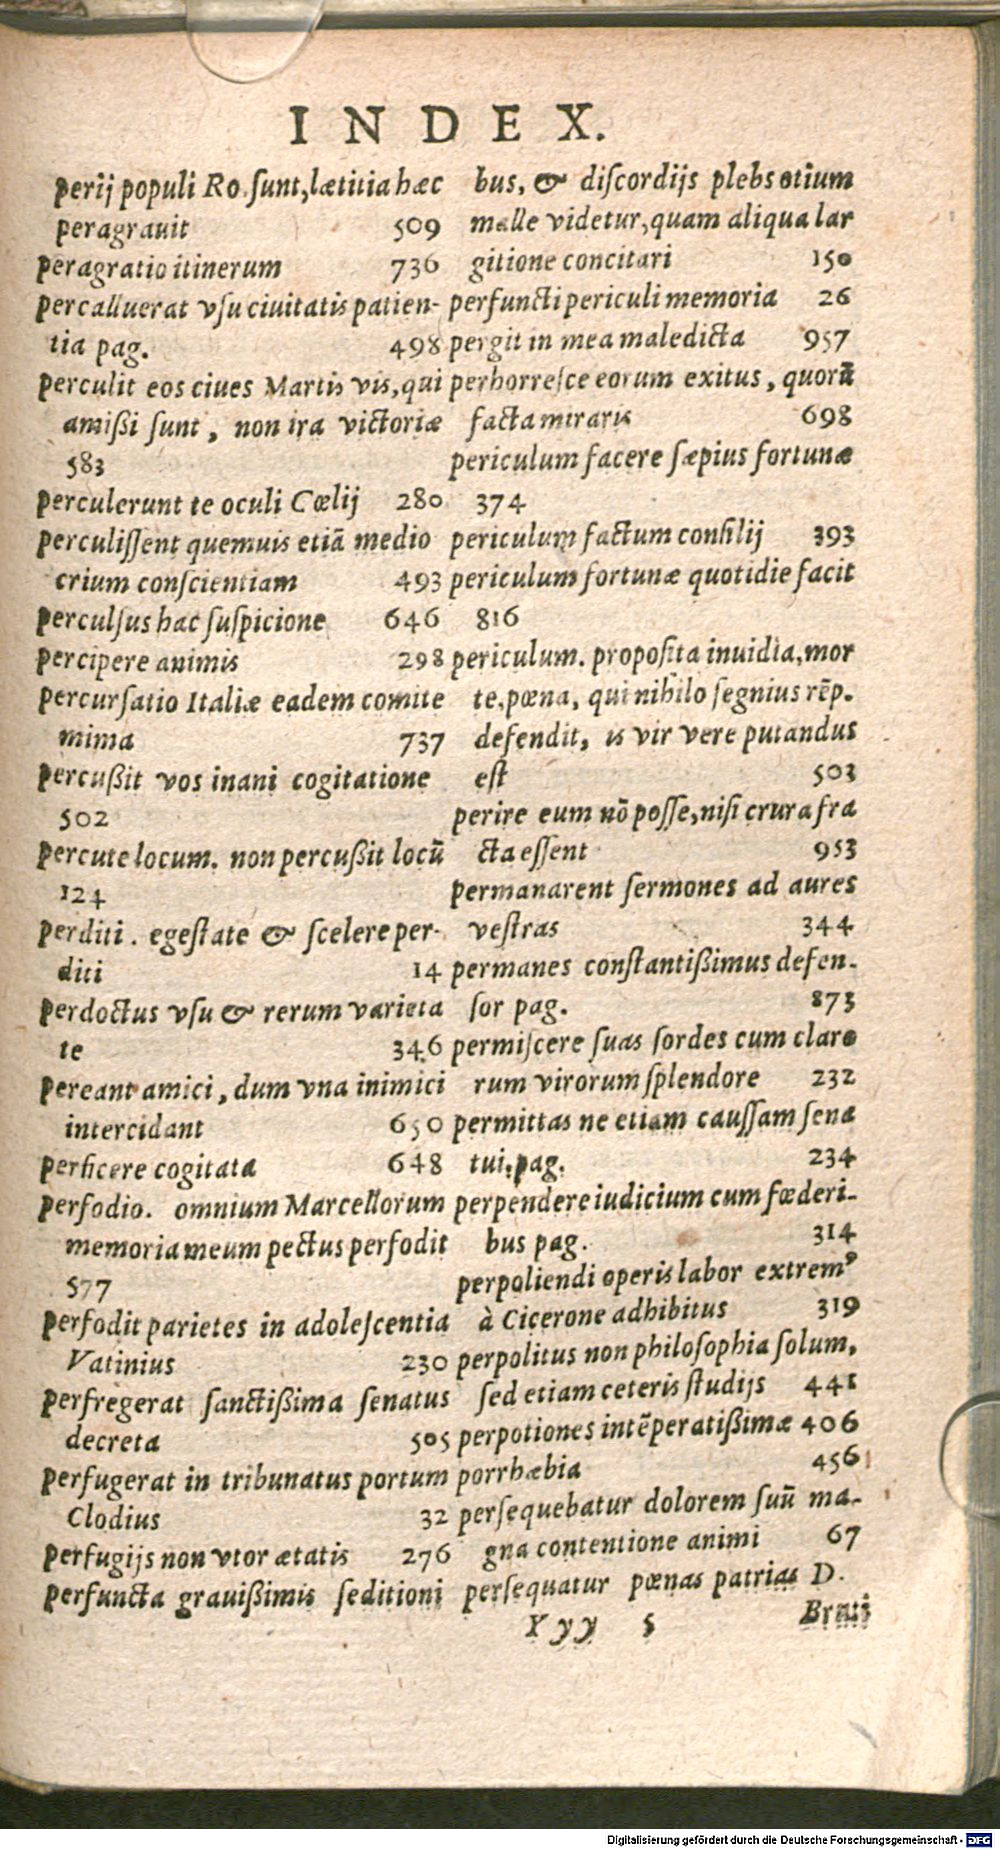 INDEX.
perij populi Ro. sunt, lætitia hæc
peragrauit 509
peragratio itinerum 736
percalluerat vsu ciuitatis patien-
tia pag. 498
perculit eos ciues Martis vis, qui
amißi sunt, non ira victoriæ
583
perculerunt te oculi Cœlij 280
perculissent quemuis etiā medio
crium conscientiam 493
perculsus hac suspicione 646
percipere animis 298
percursatio Italiæ eadem comite
mima 737
percußit vos inani cogitatione
502
percute locum. non percußit locū
124
perditi. egestate & scelere per-
diti 14
perdoctus vsu & rerum varieta
te 346
pereant amici, dum vna inimici
intercidant 650
perficere cogitata 648
perfodio. omnium Marcellorum
memoria meum pectus perfodit
577
perfodit parietes in adolescentia
Vatinius 230
perfregerat sanctißima senatus
decreta 505
perfugerat in tribunatus portum
Clodius 32
perfugijs non vtor ætatis 276
perfuncta grauißimis seditioni
bus, & discordijs plebs otium
malle videtur, quam aliqua lar
gitione concitari 150
perfuncti periculi memoria 26
pergit in mea maledicta 957
perhorresce eorum exitus, quorū
facta miraris 698
periculum facere sæpius fortunæ
374
periculum factum consilij 393
periculum fortunæ quotidie facit
816
periculum. proposita inuidia, mor
te, pœna, qui nihilo segnius rēp.
defendit, is vir vere putandus
est 503
perire eum nō posse, nisi crura fra
cta essent 953
permanarent sermones ad aures
vestras 344
permanes constantißimus defen-
sor pag. 873
permiscere suas sordes cum claro
rum virorum splendore 232
permittas ne etiam caussam sena
tui. pag. 234
perpendere iudicium cum fœderi-
bus pag. 314
perpoliendi operis labor extremꝰ
à Cicerone adhibitus 319
perpolitus non philosophia solum,
sed etiam ceteris studijs 441
perpotiones intēperatißimæ 406
porrhæbia 456
persequebatur dolorem suū ma-
gna contentione animi 67
persequatur pœnas patrias D.
Yyy 5 Bruti
Digitalisierung gefördert durch die Deutsche Forschungsgemeinschaft - DFG